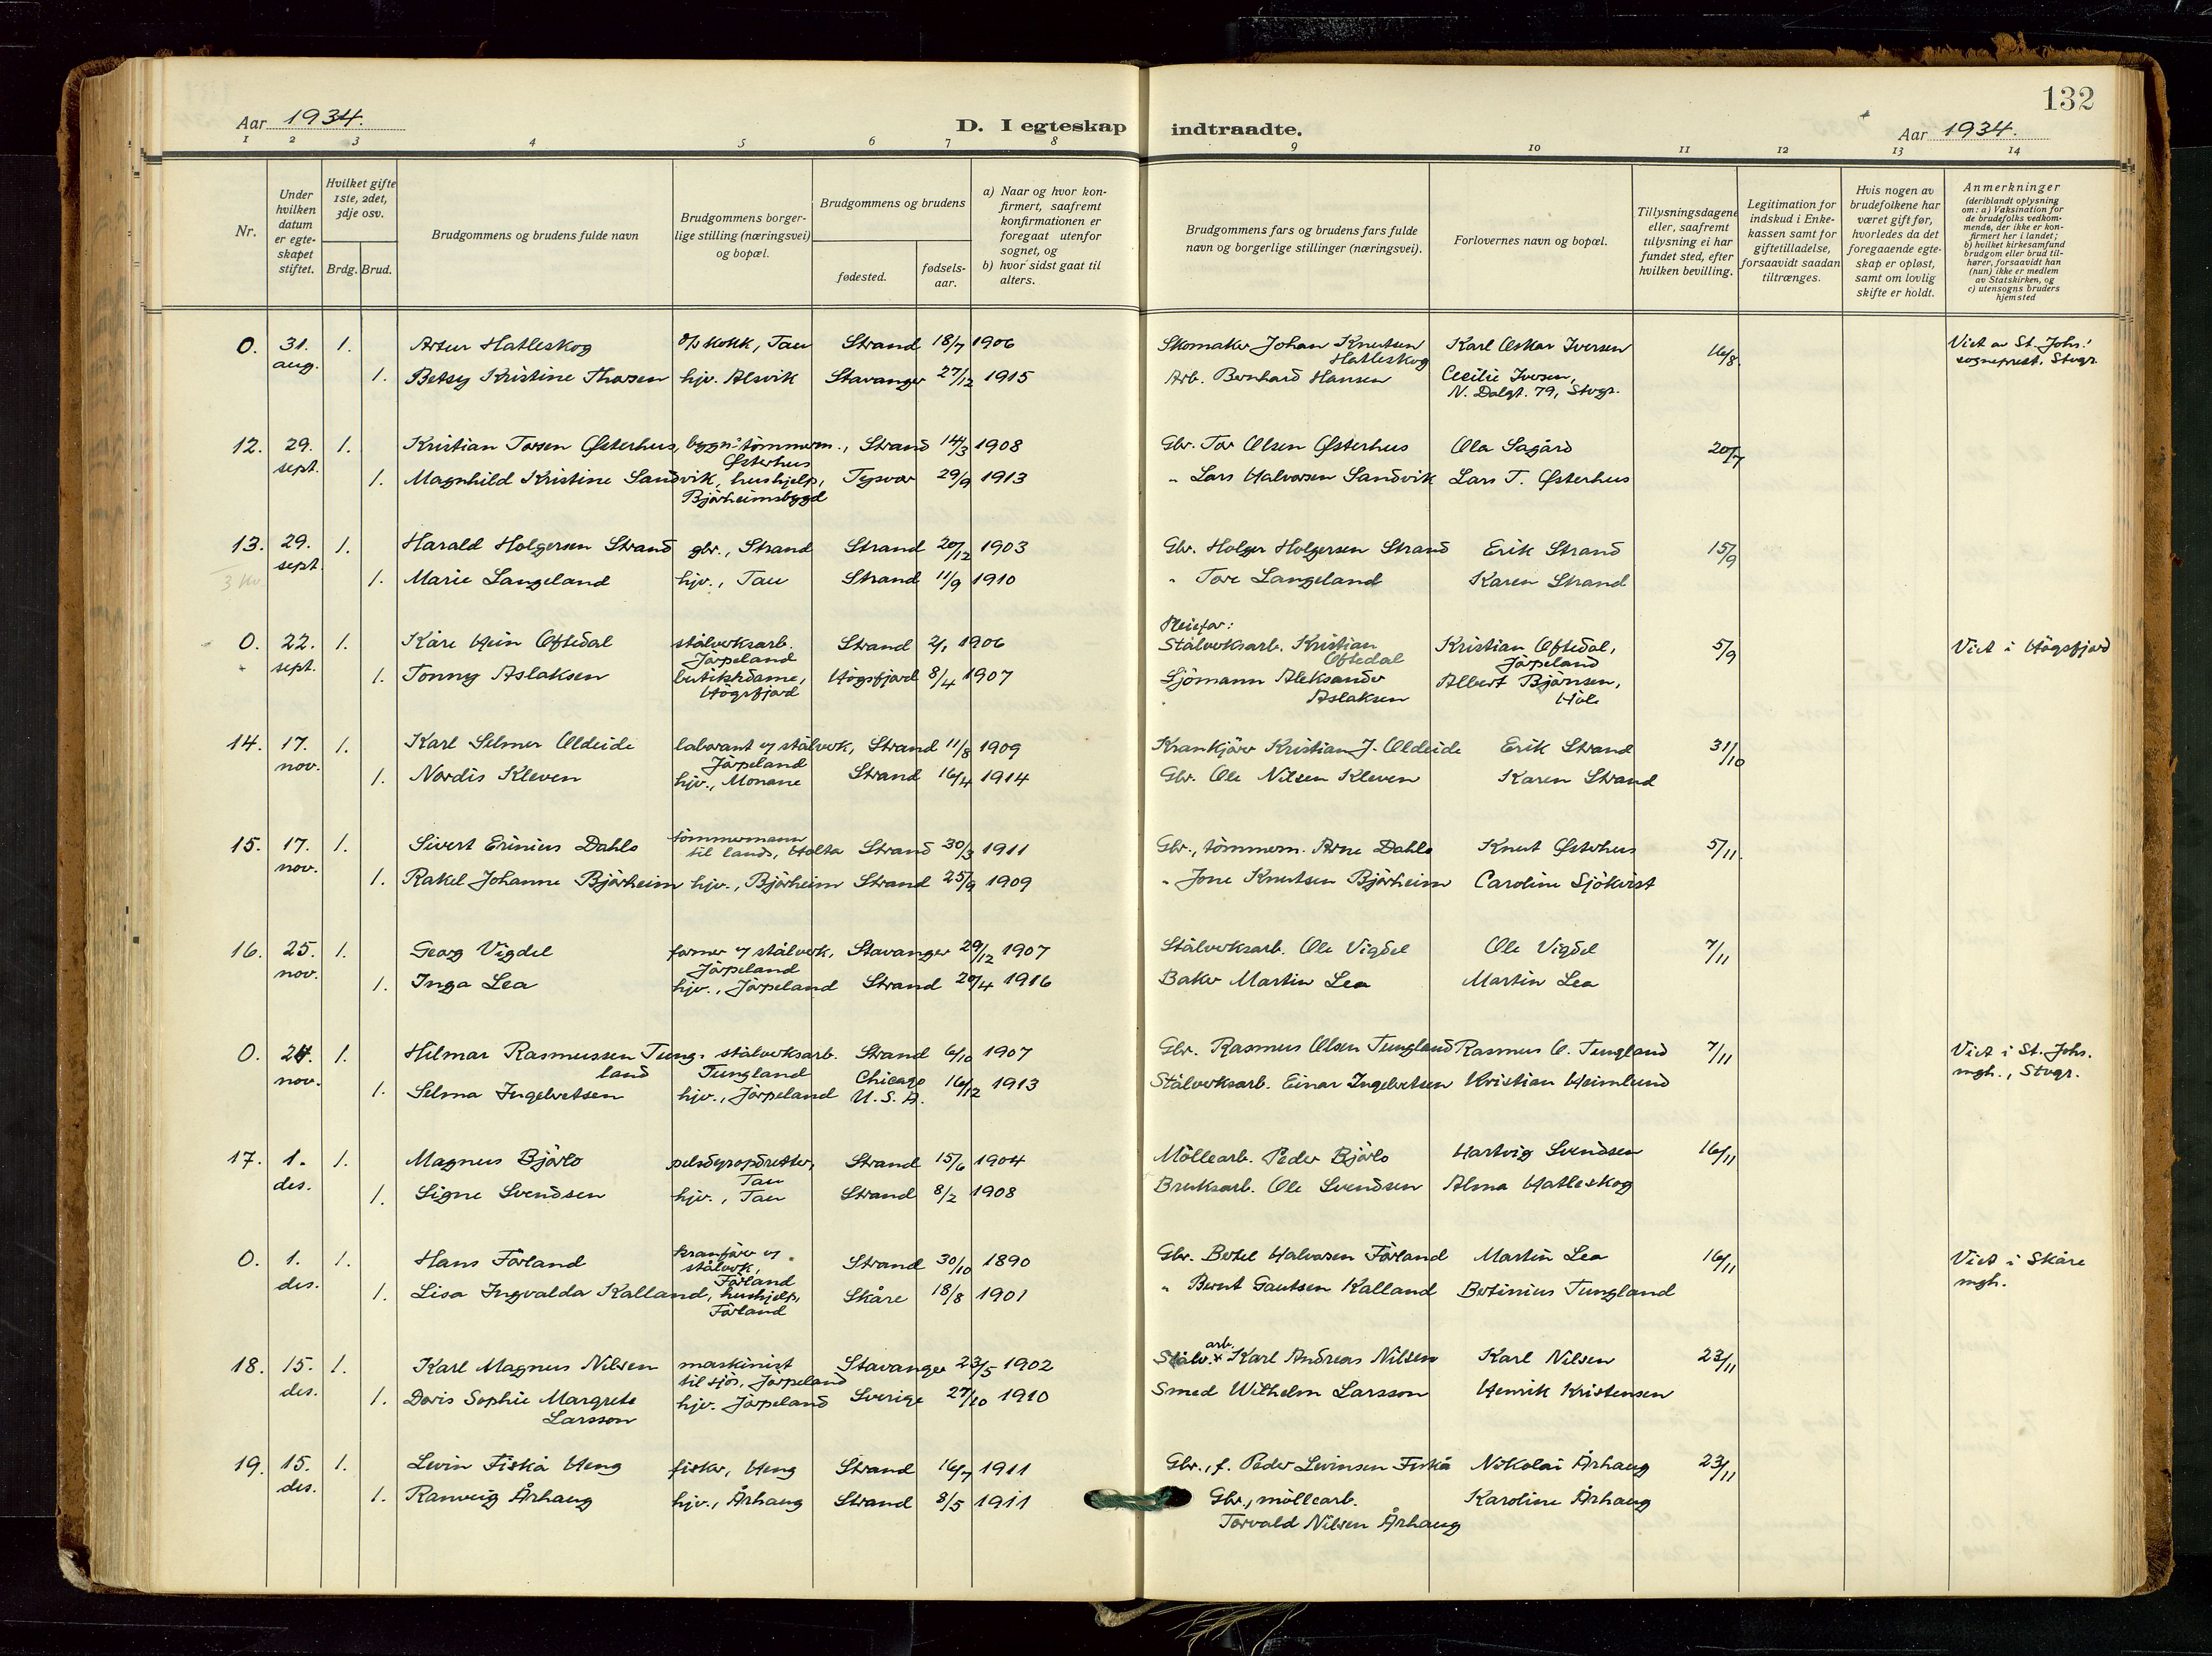 132
Aar 1934.
D. I egteskap indtraadte.
Aar 1934.
1 2 3 4 5 6 7 8 9 10 11 12 13 14
Nr.
Under hvilken datum er egte-skapet stiftet.
Hvilket gifte 1ste, 2det, 3dje osv.
Brdg. Brud.
Brudgommens og brudens fulde navn
Brudgommens borger-lige stilling (næringsvei) og bopæl.
Brudgommens og brudens
fødested.
fødsels-aar.
a) Naar og hvor kon-firmert, saafremt konfirmationen er foregaat utenfor sognet, og
b) hvor sidst gaat til alters.
Brudgommens fars og brudens fars fulde navn og borgerlige stillinger (næringsvei).
Forlovernes navn og bopæl.
Tillysningsdagene eller, saafremt tillysning ei har fundet sted, efter hvilken bevilling.
Legitimation for indskud i Enke-kassen samt for giftetilladelse, forsaavidt saadan tiltrænges.
Hvis nogen av brudefolkene har været gift før, hvorledes da det foregaaende egte-skap er opløst, samt om lovlig skifte er holdt.
Anmerkninger (deriblandt oplysning om: a) Vaksination for de brudefolks vedkom-mende, der ikke er kon-firmert her i landet; b) hvilket kirkesamfund brudgom eller brud til-hører, forsaavidt han (hun) ikke er medlem av Statskirken, og c) utensogns bruders hjemsted
0. 31. aug. 1. Artur Hatleskog kokk, Tau Strand 18/7 1906 Skomaker Johan Knutsen Hatleskog Karl Oskar Iversen 16/8. Viet av St. Johs. sogneprest, Stvgr.
1. Betsy Kristine Thorsen hjv. Alsvik Stavanger 27/12 1915 Arb. Bernhard Hansen Cecilie Iversen, N. Dalgt. 79, Stvgr.
12. 29. sept. 1. Kristian Torsen Østerhus, bygn.tömmerm., Østerhus Strand 14/3 1908 Gbr. Tor Olsen Østerhus Ola Sagård 20/7
1. Magnhild Kristine Sandvik, hushjelp, Bjørheimsbygd Tysvær 29/9 1913 " Lars Halvorsen Sandvik Lars T. Østerhus
13. 29. sept. 1. Harald Holgersen Strand gbr., Strand Strand 20/12 1903 Gbr. Holger Holgersen Strand Erik Strand 15/9
1. Marie Langeland hjv., Tau Strand 11/9 1910 " Tore Langeland Karen Strand
0. 22. sept. 1. Kåre Hein Oftedal stålverksarb. Jörpeland Strand 2/1 1906 Pleiefar: Stålverksarb. Kristian Oftedal Kristian Oftedal, Jörpeland 5/9 Viet i Högsfjord
1. Tonny Aslaksen butikkdame, Högsfjord Högsfjord 8/4 1907 Sjömann Aleksander Aslaksen Albert Bjönsen, Höle
14. 17. nov. 1. Karl Selmer Oldeide laborant v/ stålverk, Jörpeland Strand 11/8 1909 Krankjörer Kristian J. Oldeide Erik Strand 31/10
1. Nordis Kleven hjv., Monane Strand 16/4 1914 Gbr. Ole Nilsen Kleven Karen Strand
15. 17. nov. 1. Sivert Erinius Dahle tömmermann til lands, Holta Strand 30/3 1911 Gbr., tömmerm. Arne Dahle Knut Østerhus 5/11.
1. Rakel Johanne Bjørheim hjv., Bjørheim Strand 25/9 1909 " Jone Knutsen Bjørheim Caroline Sjökvist
16. 25. nov. 1. Georg Vigdel former v/ stålverk, Jörpeland Stavanger 29/12 1907 Stålverksarb. Ole Vigdel Ole Vigdel 7/11
1. Inga Lea hjv., Jörpeland Strand 20/4 1916 Baker Martin Lea Martin Lea
0. 24. nov. 1. Hilmar Rasmussen Tungland stålverksarb. Tungland Strand 6/10 1907 Gbr. Rasmus Olsen Tungland Rasmus O. Tungland 7/11 Viet i St. Johs. mgh., Stvgr.
1. Selma Ingebretsen hjv., Jörpeland Chicago U.S.A. 16/12 1913 Stålverksarb. Einar Ingebretsen Kristian Heimlund
17. 1. des. 1. Magnus Bjørlo pelsdyropdretter, Tau Strand 15/6 1904 Möllearb. Peder Bjørlo Hartvig Svendsen 16/11
1. Signe Svendsen hjv., Tau Strand 8/2 1908 Bruksarb. Ole Svendsen Alma Hatleskog
0. 1. des. 1. Hans Förland kranfører v/ stålverk, Förland Strand 30/10 1890 Gbr. Bertel Halvorsen Förland Martin Lea 16/11 Viet i Skåre mgh.
1. Lisa Ingvalda Kalland, hushjelp, Förland Skåre 18/8 1901 " Bernt Gautsen Kalland Bertinius Tungland
18. 15. des. 1. Karl Magnus Nilsen maskinist til sjös, Jörpeland Stavanger 23/5 1902 Stålv. arb. Karl Andreas Nilsen Karl Nilsen 23/11
1. Doris Sophie Margrete Larsson hjv. Jörpeland Sverige 27/10 1910 Smed Wilhelm Larsson Henrik Kristensen
19. 15. des. 1. Levin Fiskå Heng fisker, Heng Strand 16/7 1911 Gbr., f. Peder Levinsen Fiskå Nikolai Århaug 23/11
1. Ranveig Århaug hjv., Århaug Strand 8/5 1911 Gbr., möllearb. Torvald Nilsen Århaug Karoline Århaug